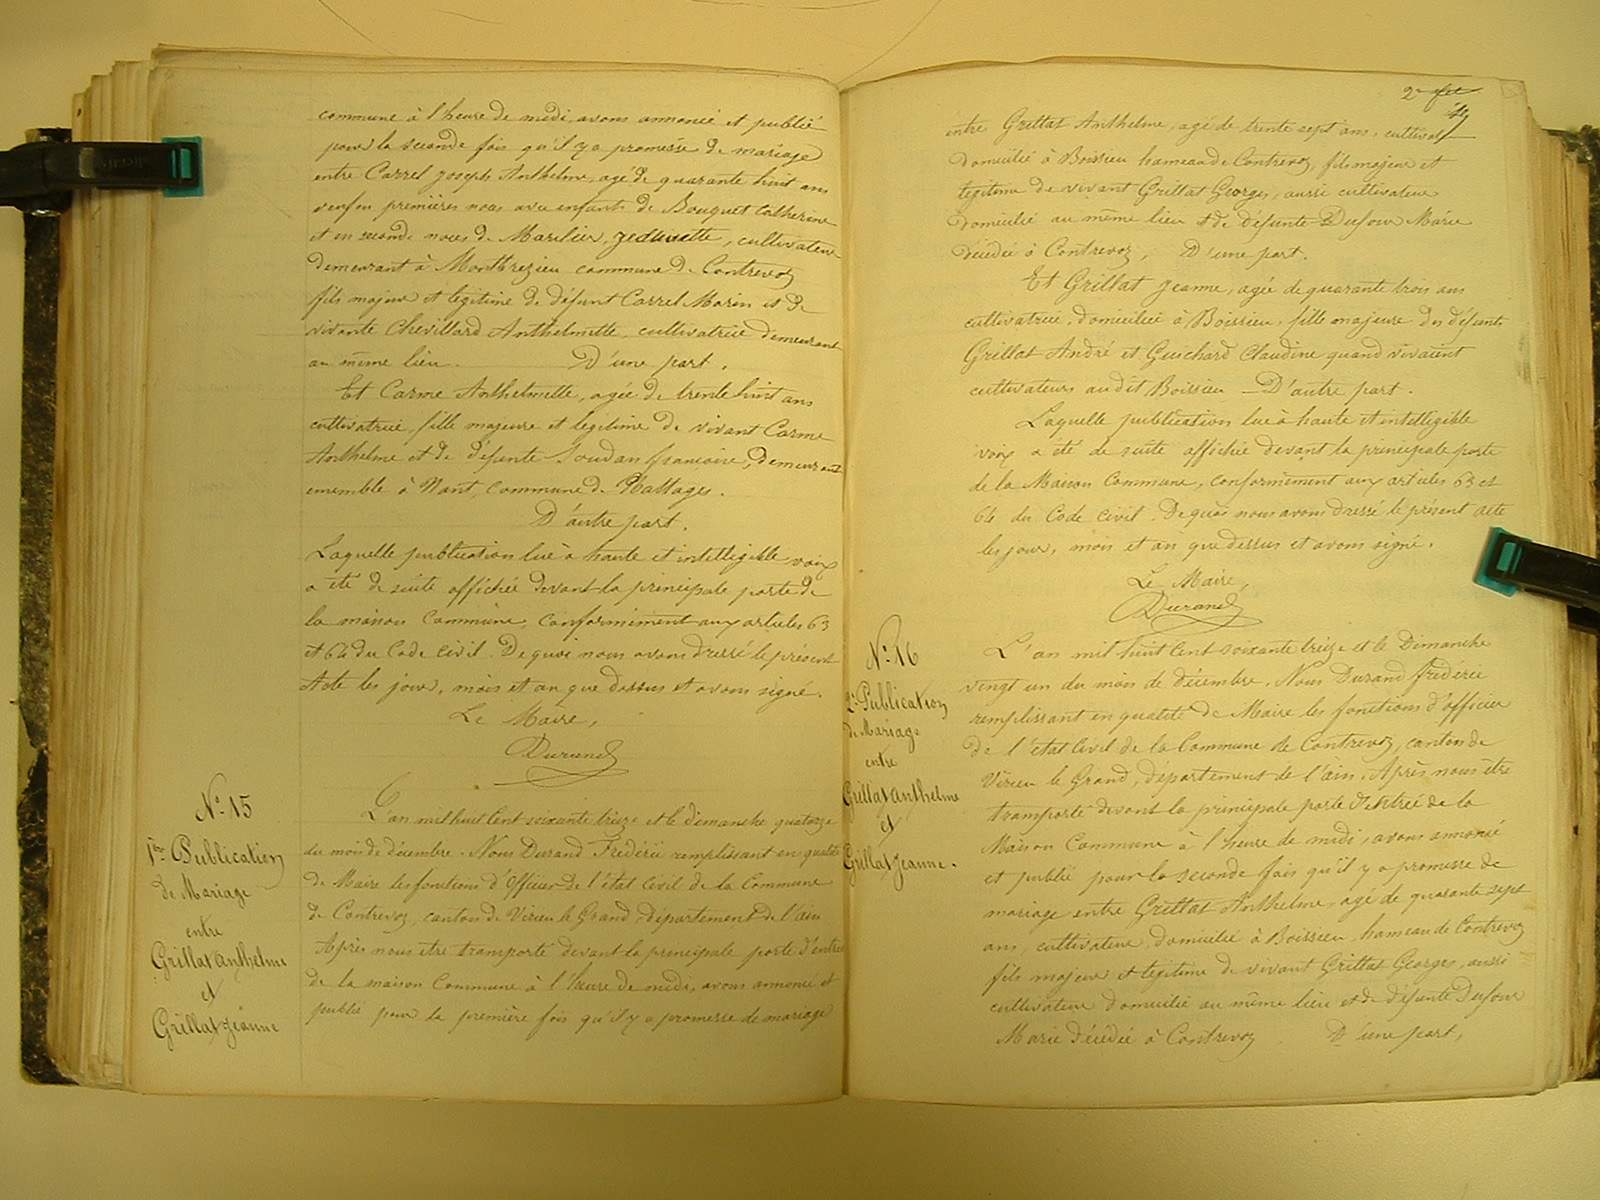 commune à l'heure de midi, avons annoncé et publié
pour la seconde fois qu'il y a promesse de mariage
entre Carrel Joseph Anthelme, agé de quarante huit ans
veuf en premières noces avec enfants de Bouquet Catherine
et en seconde noces de Marilier, cultivateur
demeurant à Montbrezieu commune de Contrevoz
fils majeur et légitime de défunt Carrel Marin et de
vivante Chevillard Anthelmette, cultivatrice demeurant
au même lieu. D'une part.
Et Carme Anthelmette, agée de trente huit ans
cultivatrice, fille majeure et légitime de vivant Carme
Anthelme et de défunte Soudan francoise, demeurant
ensemble à Nant, commune de
D'autre part.
Laquelle publication lue à haute et intelligible voix
a été de suite affichée devant la principale porte de
la maison Commune, conformément aux articles 63
et 64 du Code civil. De quoi nous avons dressé le présent
Acte les jour, mois et an que dessus et avons signé.
Le Maire,
Durand
N° 15
1ère Publication
de Mariage
entre
Grillat Anthelme
et
Grillat Jeanne
L'an mil huit Cent soixante treize et le dimanche quatorze
du mois de décembre. Nous Durand Frédéric remplissant en qualité
de Maire les fonctions d'Officier de l'état Civil de la Commune
de Contrevoz, canton de Virieu le Grand, département de l'ain
Après nous être transporté devant la principale porte d'entrée
de la maison Commune à l'heure de midi, avons annoncé et
publié pour la première fois qu'il y a promesse de mariage
entre Grillat Anthelme, agé de trente sept ans, cultivat
domicilié à Boissieu hameau de Contrevoz, fils majeur et
légitime de vivant Grillat Georges, aussi cultivateur
domicilié au même lieu et de défunte Dufour Marie
décédée à Contrevoz, D'une part.
Et Grillat Jeanne, agée de quarante trois ans
cultivatrice, domiciliée à Boissieu, fille majeure des défunts
Grillat André et Guichard Claudine quand vivaient
cultivateurs au dit Boissieu — D'autre part.
Laquelle publication lue à haute et intelligible
voix a été de suite affichée devant la principale porte
de la Maison Commune, conformément aux articles 63 et
64 du Code civil. De quoi nous avons dressé le présent acte
les jour, mois et an que dessus et avons signé.
Le Maire,
Durand
N° 16
2e Publication
de Mariage
entre
Grillat Anthelme
et
Grillat Jeanne.
L'an mil huit Cent soixante treize et le Dimanche
vingt un du mois de décembre. Nous Durand frédéric
remplissant en qualité de Maire les fonctions d'officier
de l'état Civil de la Commune de Contrevoz, canton de
Virieu le Grand, département de l'ain. Après nous être
transporté devant la principale porte d'entrée de la
Maison Commune à l'heure de midi, avons annoncé
et publié pour la seconde fois qu'il y a promesse de
mariage entre Grillat Anthelme, agé de quarante sept
ans, cultivateur, domicilié à Boissieu, hameau de Contrevoz
fils majeur et légitime de vivant Grillat Georges, aussi
cultivateur domicilié au même lieu et de défunte Dufour
Marie décédée à Contrevoz. D'une part,